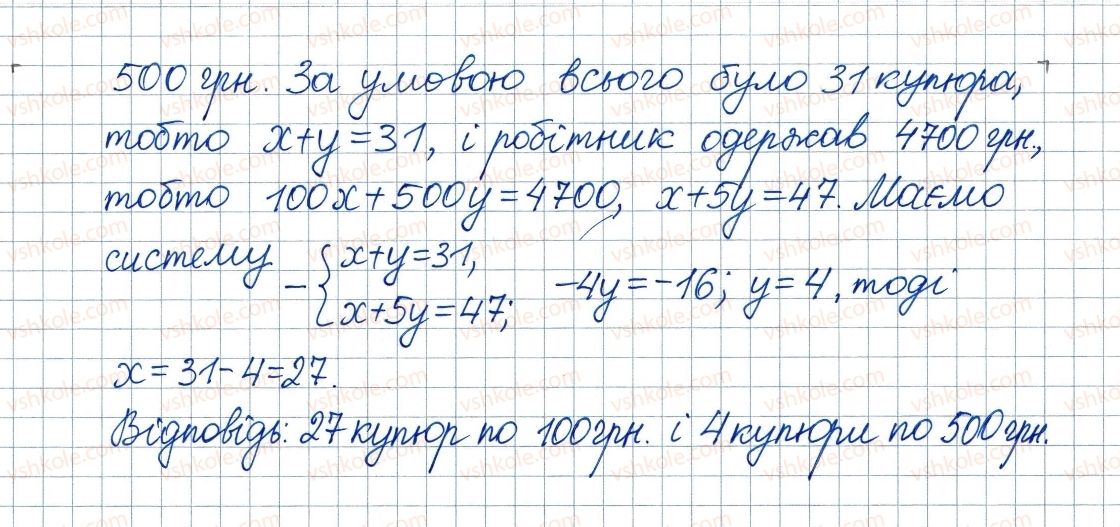 500 грн. За умовою всього було 31 купюра,
тобто x+y=31, і робітник одержав 4700 грн.,
тобто 100x+500y=4700, x+5y=47. Маємо
систему - { x+y=31,
x+5y=47; -4y=-16; y=4, тоді
x=31-4=27.
Відповідь: 27 купюр по 100 грн. і 4 купюри по 500 грн.